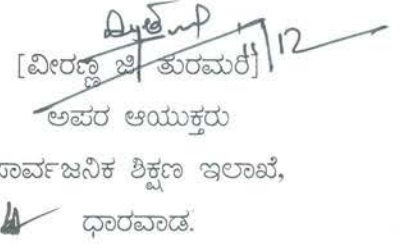 11/12
[ವೀರಣ್ಣ ಜಿ ತುರಮರಿ]
ಅಪರ ಆಯುಕ್ತರು
ಸಾರ್ವಜನಿಕ ಶಿಕ್ಷಣ ಇಲಾಖೆ,
ಧಾರವಾಡ.